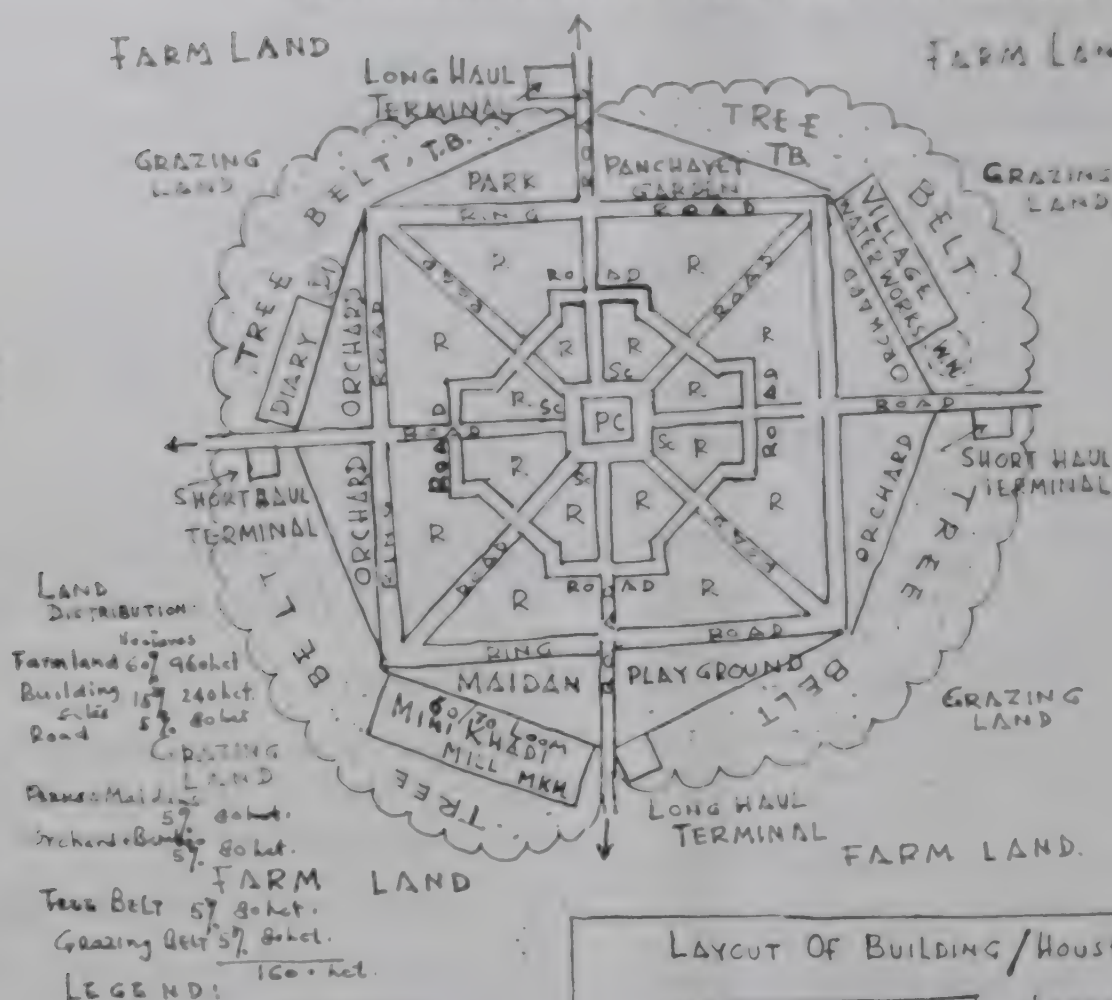 FARM LAND
FARM LAN
LONG HAUL
TERMINAL
TREE
TB.
BELT
BELT, T.B.
TREE
GRAZING
LAND
GRAZING
LAND
PARK
PANCHAYET
GARDEN
RING
ROAD
VILLAGE
WATER WORKS
WW
ORCHARD
DIARY
ORCHARD
ROAD
ROAD
ROAD
RO
AD
R.
R.
R
R
R
R
R.
R
Sc
Sc
PC
Sc
Sc
R
R
R
R
R
R
R
R
ROAD
ROAD
ROAD
ROAD
RO
AD
SHORT HAUL
TERMINAL
SHORT HAUL
TERMINAL
ORCHARD
ORCHARD
RING
ROAD
ROAD
RO
AD
RING
ROAD
MAIDAN
PLAYGROUND
60/70 LOOM
MINI KHADI
MILL MKM
TREE
BELT
TREE
BELT
GRAZING
LAND
LONG HAUL
TERMINAL
FARM LAND.
LAND
DISTRIBUTION.
Farmland 60% 960 hct
Building 15% 240 hct.
Road 5% 80 hct
GRAZING
LAND
Parks + Maidans
5% 80 hct.
5% 80 hct.
FARM LAND
Tree BELT 5% 80 hct.
Grazing BELT 5% 80 hct.
1600 hct.
LEGEND:
LAYOUT OF BUILDING/HOUS